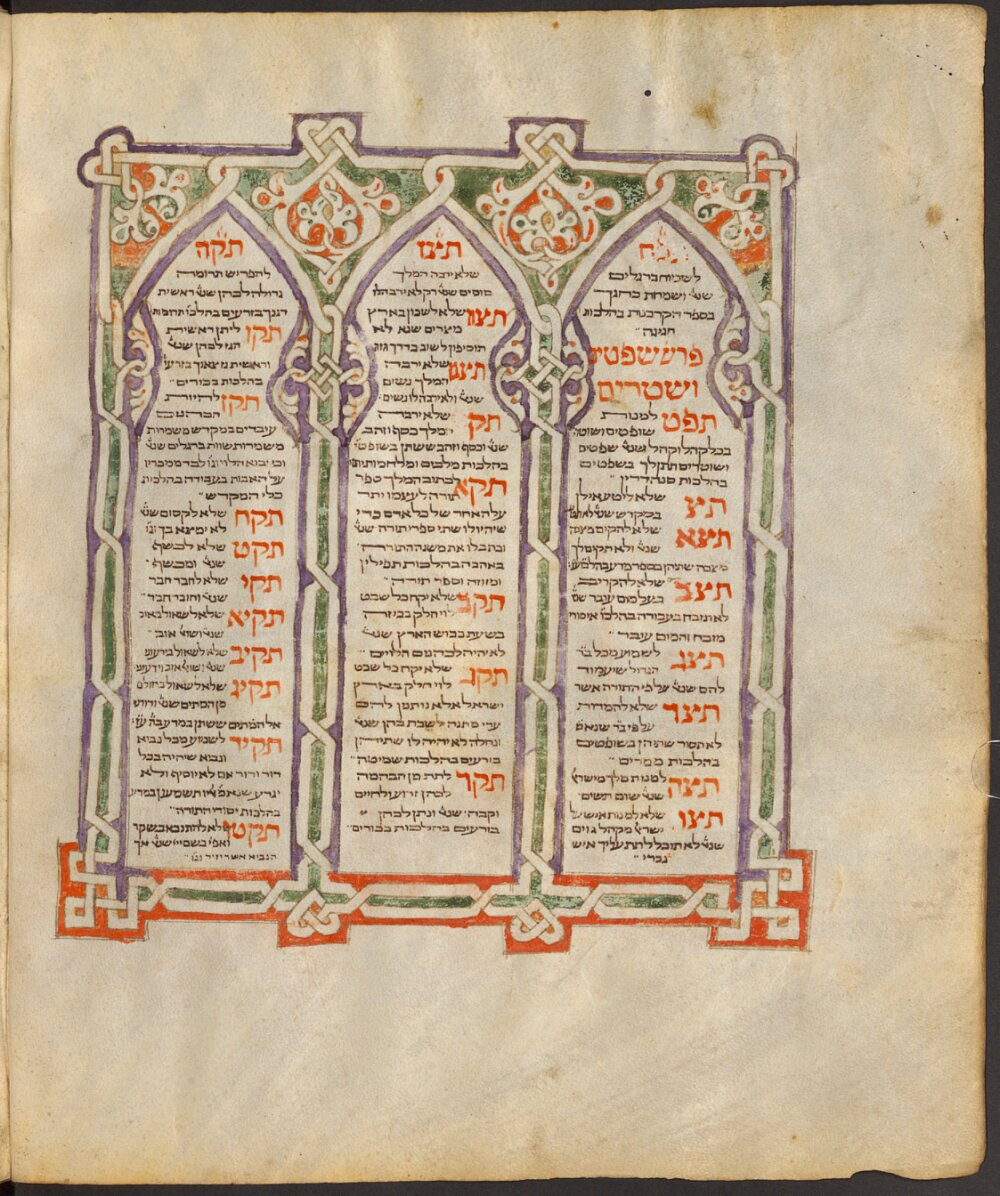 תפח
לשמוח ברגלים
שנ׳ ושמחת בחגך
בספר הקרבנות בהלכות
חגיגה
פרשׁ שפטי׳
וישטרים
תפט למנות
שופטים ושוט׳
בכל קהל וקהל שנ׳ שפטים
ושוטרים תתן לך בשפטים
בהלכות סנהדרין
תצ שלא ליטע אילן
במקדש שנ׳ לא תטע
תצא שלא להקים מצבה
שנ׳ ולא תקים לך
מצבה שתיהן בספר מדע בהל׳ ע׳
תצב שלא להקריב
בעל מום עובר שנ׳
לא תזבח בעבודה בהלכו׳ איסורי
מזבח והמום עובר
תצג לשמוע מכל בי׳
הגדול שיעמוד
להם שנ׳ על פי התורה אשר
תצד שלא להמרות
על פי ב׳ד שנאמ׳
לא תסור שתיהן בשופטים
בהלכות ממרים
תצה למנות מלך מישר׳
שנ׳ שום תשים
תצו שלא למנות איש על
ישר׳ מקהל גוים
שנ׳ לא תוכל לתת עליך איש
נכרי
תצז
שלא ירבה המלך
סוסים שנ׳ רק לא ירבה לו
תצח שלא לשכון בארץ
מצרים שנא׳ לא
תוסיפון לשוב בדרך הזה
תצט שלא ירבה
המלך נשים
שנ׳ ולא ירבה לו נשים
תק שלא ירבה
מלך כסף וזהב
שנ׳ וכסף וזהב ששתן בשופט׳
בהלכות מלכים ומלחמותיהם
תקא לכתוב המלך ספר
תורה לעצמו יתר
על האחר של כל אדם כדי
שיהיו לו שתי ספרי תורה שנ׳
וכתב לו את משנה התורה
באהבה בהלכות תפילין
ומזוזה וספר תורה
תקב שלא יקח כל שבט
לוי חלק בביזה
בשעת כבוש הארץ שנ׳
לא יהיה לכהנים הלוים
תקג שלא יקח כל שבט
לוי חלק בארץ
ישראל אלא נותנן להם
ערי מתנה לשבת בהן שנ׳
ונחלה לא יהיה לו שתיהן
בזרעים בהלכות שמיטה
תקד לתת מן הבהמה
לכהן זרוע ולחיים
וקבה שנ׳ ונתן לכהן
בזרעים בהלכות בכורים
תקה
להפריש תרומה
גדולה לכהן שנ׳ ראשית
דגנך בזרעים בהלכו׳ תרומות
תקו ליתן ראשית
הגז לכהן שנ׳
וראשית גז צאנך בזרעי׳
בהלכות בכורים
תקז להיות
הכהנים
עובדים במקדש משמרות
משמרות שוות ברגלים שנ׳
וכי יבוא הלוי וג׳ו לבד ממכריו
על האבות בעבודה בהלכות
כלי המקדש
תקח שלא לקסום שנ׳
לא ימצא בך וג׳ו
תקט שלא לכשף
שנ׳ ומכשף
תקי שלא לחבר חבר
שנ׳ וחובר חבר
תקיא שלא לשאול באוב
שנ׳ ושואל אוב
תקיב שלא לשאול בידעוני
שנ׳ ושואל אוב וידעוני
תקיג שלא לשאול בחלום
מן המתים שנ׳ ודורש
אל המתים ששתן במדע בה׳ ע׳ז
תקיד לשמוע מכל נביא
ונביא שיהיה בכל
דור ודור אם לא יוסיף ולא
יגרע שנא׳ אליו תשמעון במדע
בהלכות יסודי התורה
תקטו שלא להתנבא בשקר
ואפי׳ בשם יי׳ שנ׳ אך
הנביא אשר יזיד וג׳ו